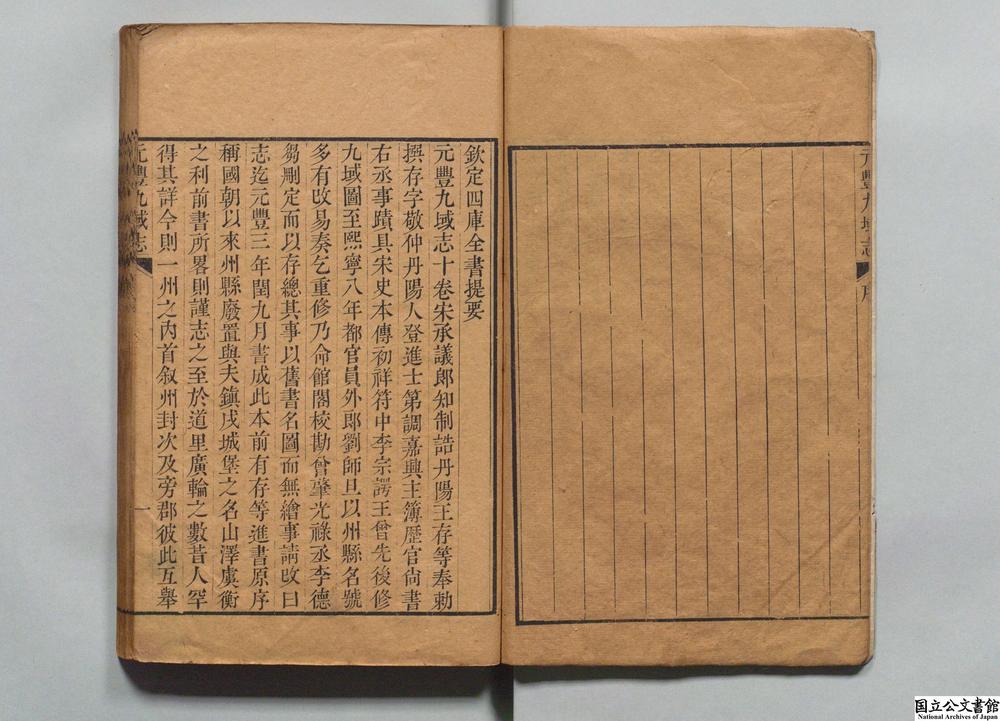 元豐九域志
序
欽定四庫全書提要
元豐九域志十卷宋承議郎知制誥丹陽王存等奉勅
撰存字敬仲丹陽人登進士第調嘉興主簿歷官尙書
右丞事蹟具宋史本傳初祥符中李宗諤王曾先後修
九域圖至熙寧八年都官員外郎劉師旦以州縣名號
多有改易奏乞重修乃命館閣校勘曾肇光祿丞李德
芻刪定而以存總其事以舊書名圖而無繪事請改曰
志迄元豐三年閏九月書成此本前有存等進書原序
稱國朝以來州縣廢置與夫鎭戍城堡之名山澤虞衡
之利前書所畧則謹志之至於道里廣輪之數昔人罕
得其詳今則一州之內首叙州封次及旁郡彼此互舉
元豐九域志
一
国立公文書館
National Archives of Japan